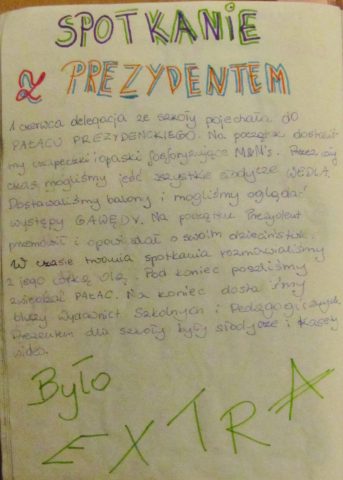 SPOTKANIE
Z PREZYDENTEM
1 czerwca delegacja ze szkoły pojechała do
PAŁACU PREZYDENCKIEGO. Na początek dostaliś-
my czapeczki i opaski fosforyzujące M&N's. Przez cały
czas mogliśmy jeść wszystkie słodycze WEDLA.
Dostawaliśmy balony i mogliśmy oglądać
występy GAWĘDY. Na początku Prezydent
przemówił i opowiadał o swoim dzieciństwie.
W czasie trwania spotkania rozmawialiśmy
z jego córką Olą. Pod koniec poszliśmy
zwiedzać PAŁAC. Na koniec dostaliśmy
bluzy Wydawnictw Szkolnych i Pedagogicznych.
Prezentem dla szkoły były słodycze i kasety
video.
Było
EXTRA